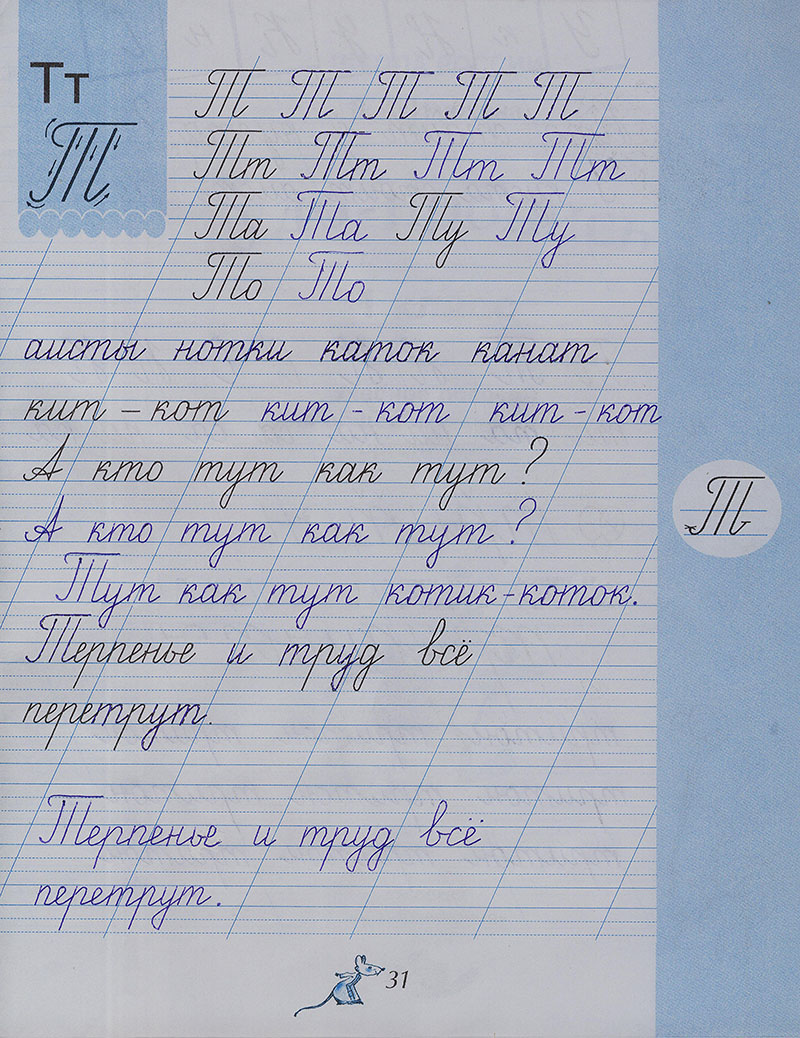 Тт
Т
Т Т Т Т Т
Тт Тт Тт Тт
Та Та Ту Ту
То То
аисты нотки каток канат
кит – кот кит - кот кит - кот
А кто тут как тут?
А кто тут как тут?
Т
Тут как тут котик-коток.
Терпенье и труд всё
перетрут.
Терпенье и труд всё
перетрут.
31